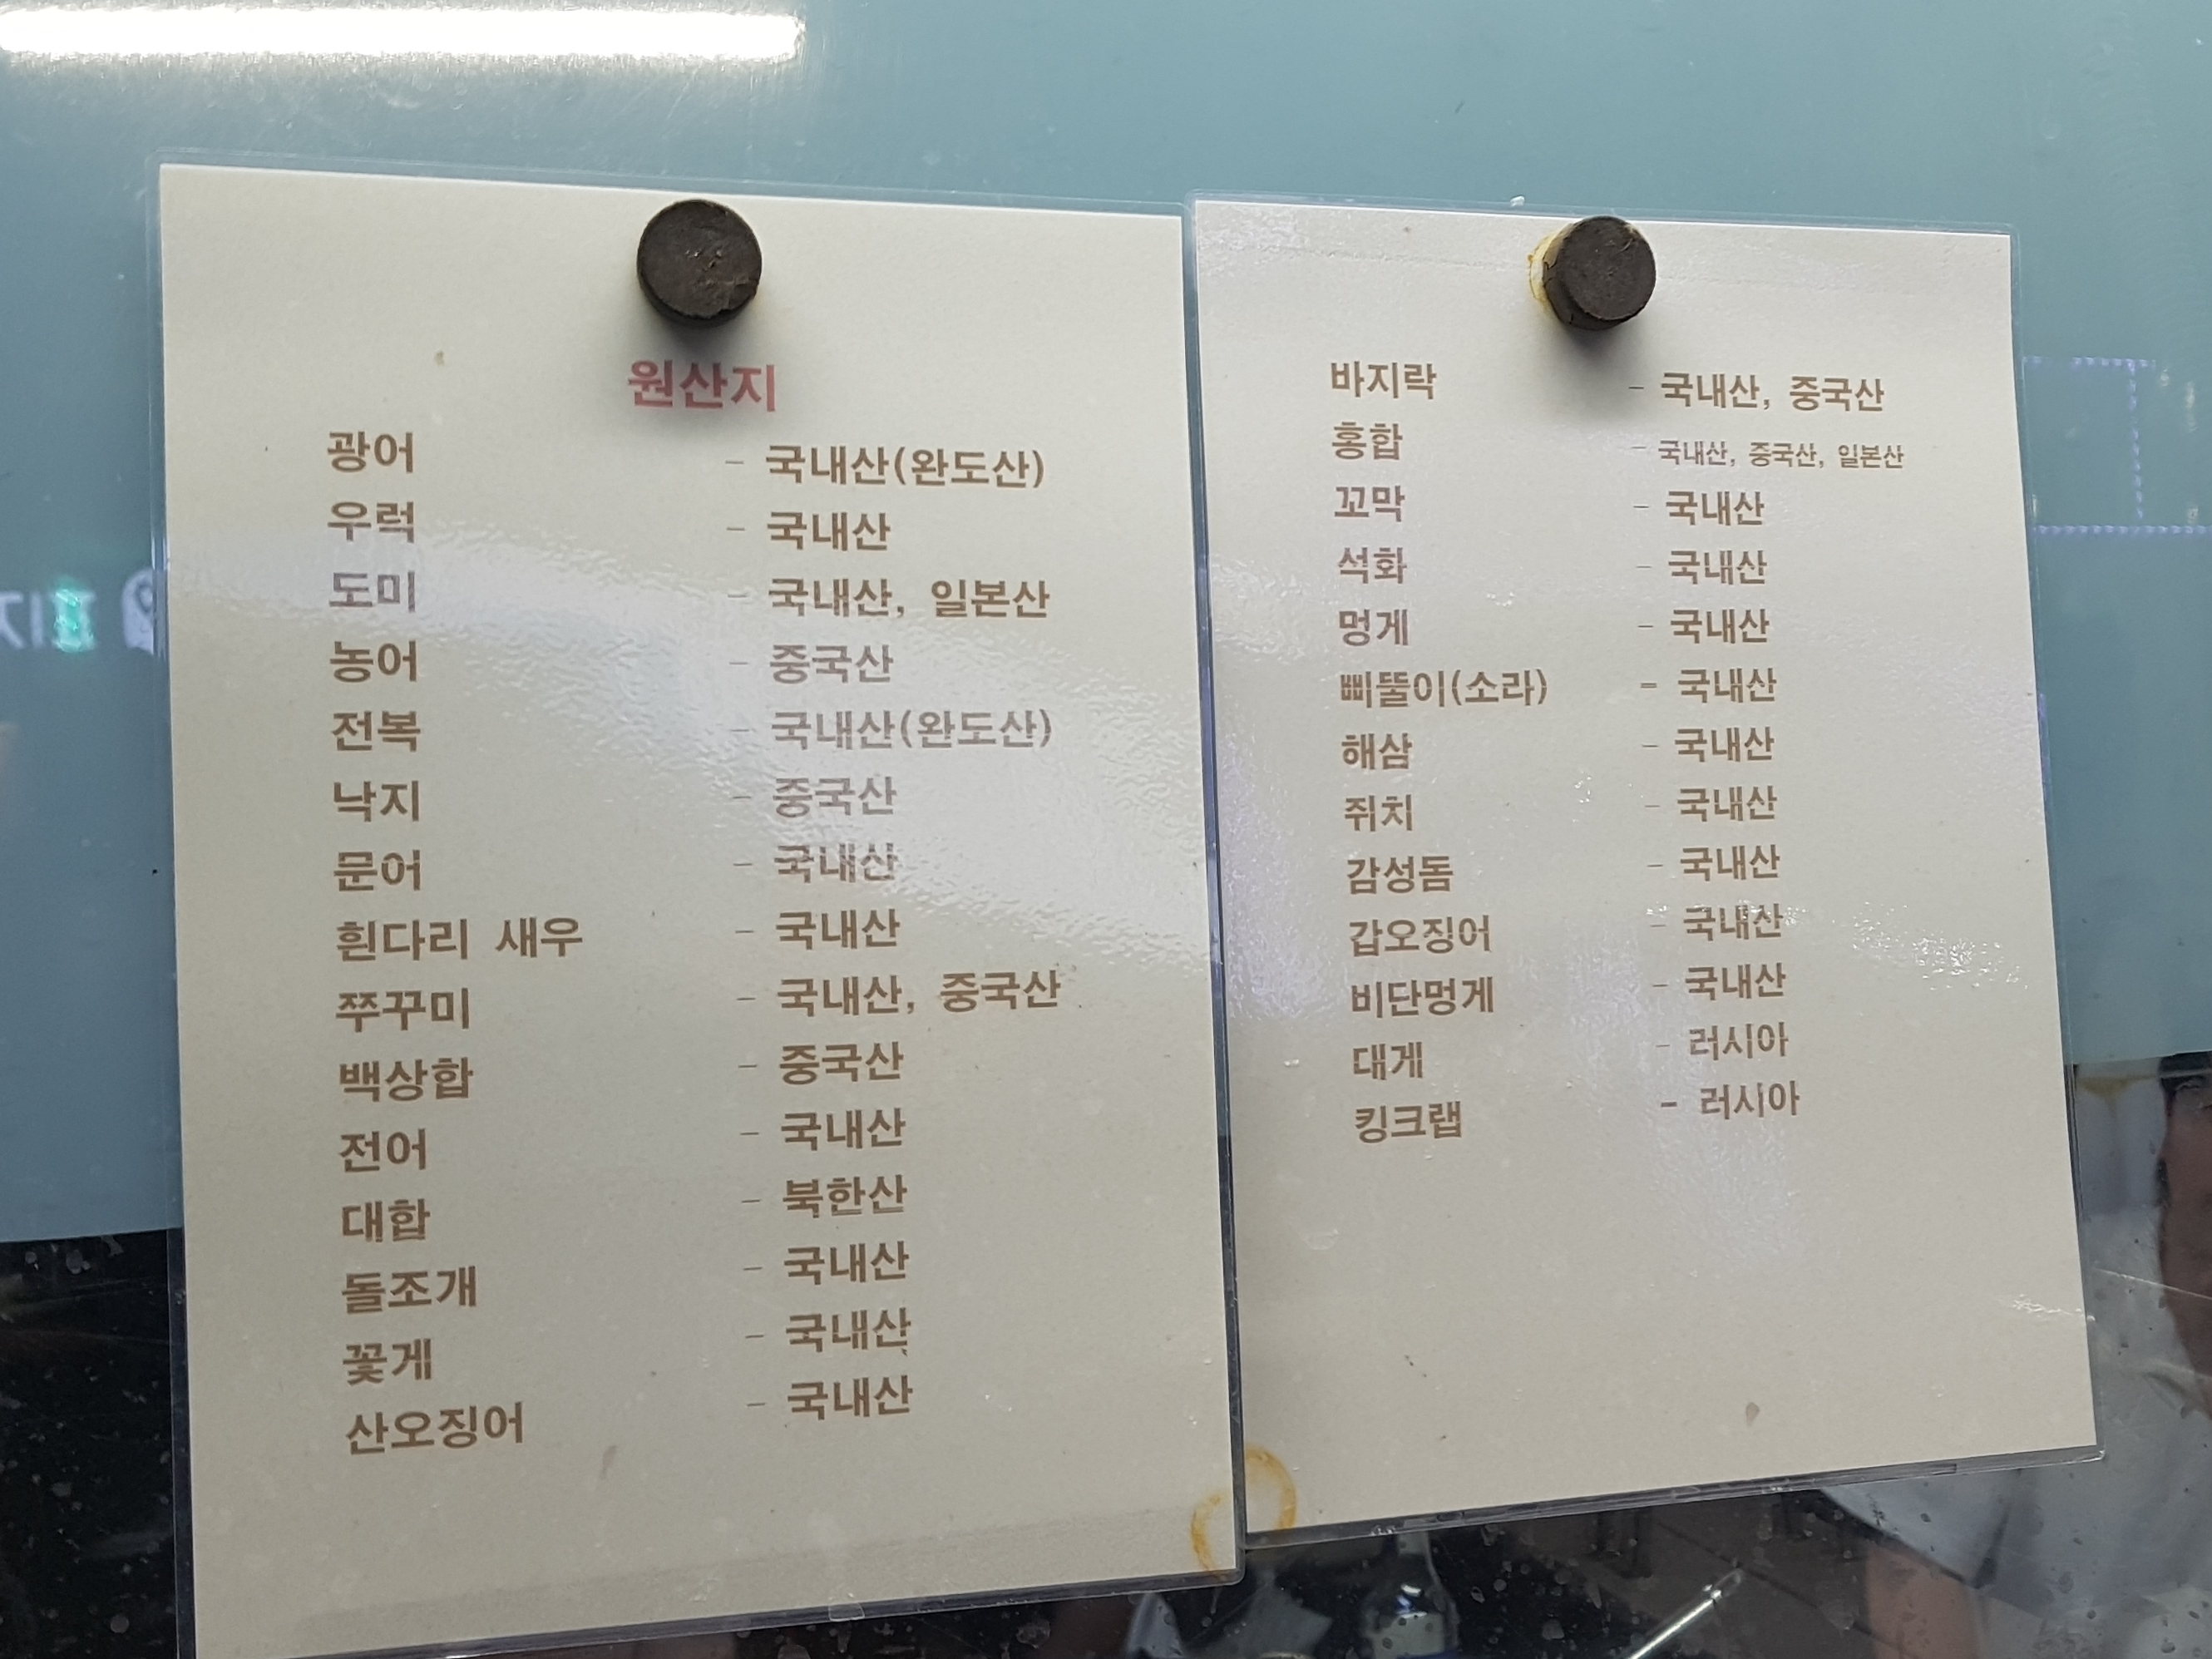 원산지
광어 - 국내산(완도산)
우럭 - 국내산
도미 - 국내산, 일본산
농어 - 중국산
전복 - 국내산(완도산)
낙지 - 중국산
문어 - 국내산
흰다리 새우 - 국내산
쭈꾸미 - 국내산, 중국산
백상합 - 중국산
전어 - 국내산
대합 - 북한산
돌조개 - 국내산
꽃게 - 국내산
산오징어 - 국내산
바지락 - 국내산, 중국산
홍합 - 국내산, 중국산, 일본산
꼬막 - 국내산
석화 - 국내산
멍게 - 국내산
삐뚤이(소라) - 국내산
해삼 - 국내산
쥐치 - 국내산
감성돔 - 국내산
갑오징어 - 국내산
비단멍게 - 국내산
대게 - 러시아
킹크랩 - 러시아